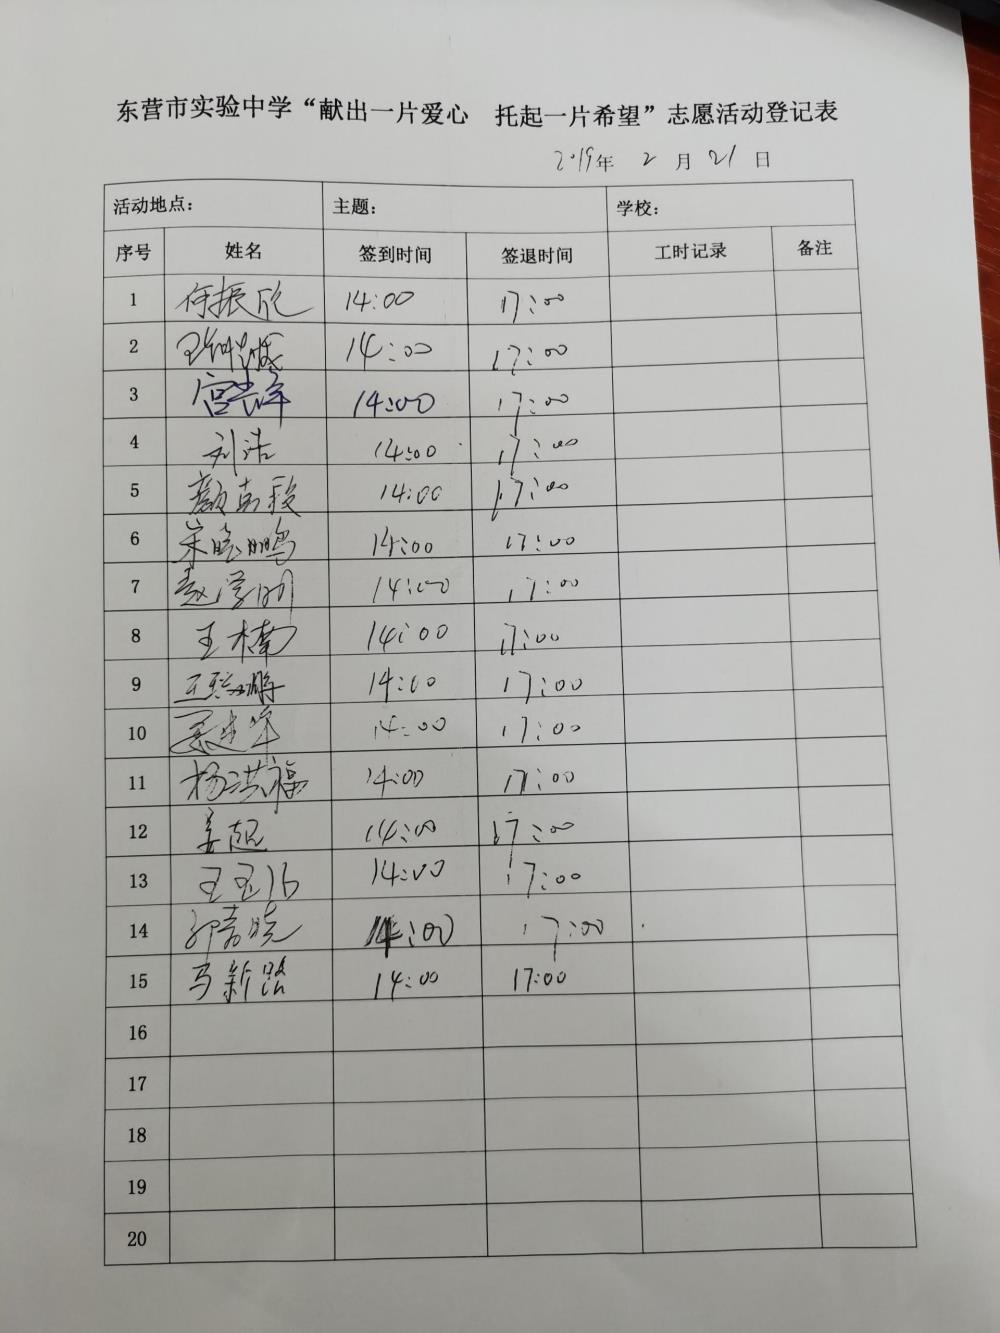 东营市实验中学“献出一片爱心 托起一片希望”志愿活动登记表
2019年 2 月 21 日
活动地点： 主题： 学校：
序号 姓名 签到时间 签退时间 工时记录 备注
1 徐振欣 14:00 17:00
2 14:00 17:00
3 14:00 17:00
4 刘浩 14:00 17:00
5 14:00 17:00
6 宋晓鹏 14:00 17:00
7 14:00 17:00
8 王楠 14:00 17:00
9 14:00 17:00
10 14:00 17:00
11 杨洪福 14:00 17:00
12 姜超 14:00 17:00
13 14:00 17:00
14 14:00 17:00
15 马新路 14:00 17:00
16
17
18
19
20